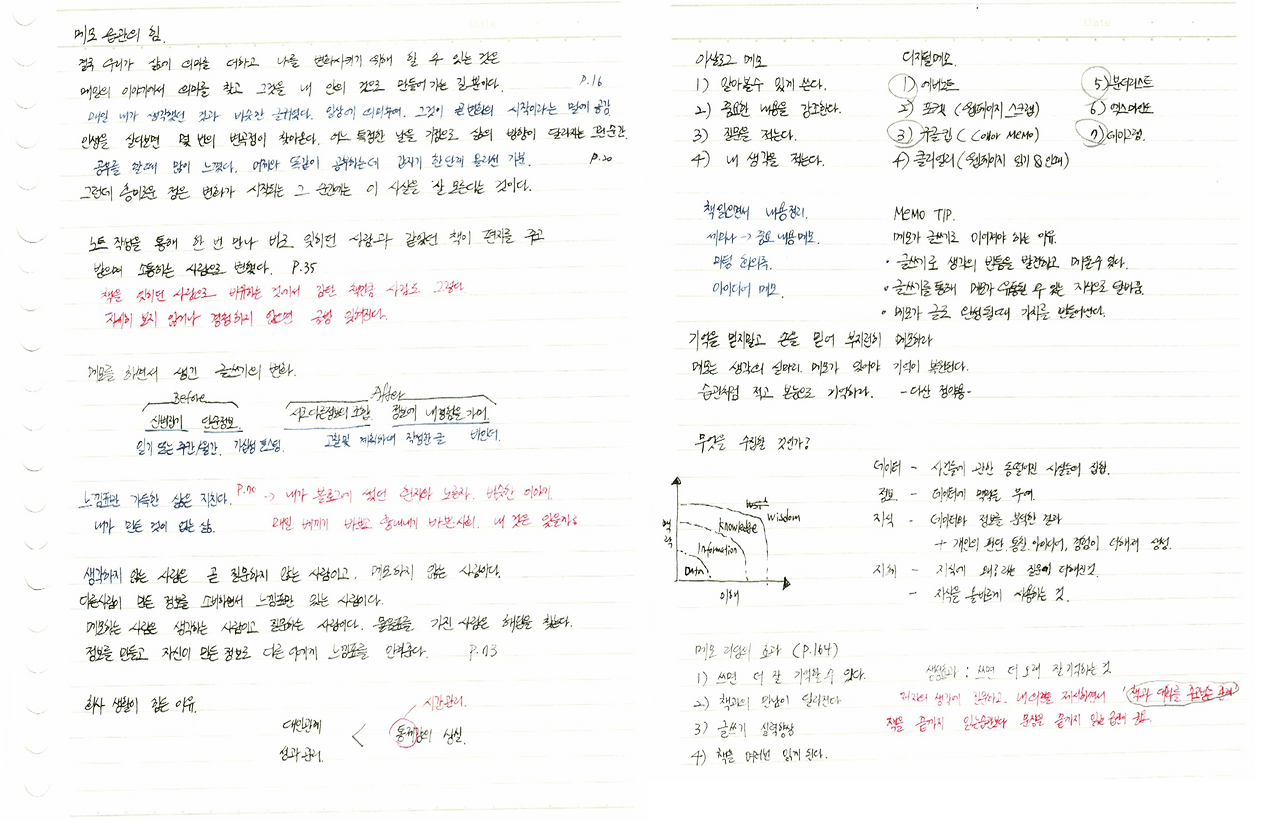 메모 습관의 힘.
결국 우리가 삶에 의미를 더하고 나를 변화시키기 위해 할 수 있는 것은
매일의 이야기에서 의미를 찾고 그것을 내 안의 것으로 만들어 가는 길 뿐이다. P.16
매일 내가 생각했던 것과 비슷한 글귀였다. 일상에 의미부여. 그것이 큰 변화의 시작이라는 말에 공감
인생을 살다보면 몇 번의 변곡점이 찾아온다. 어느 특정한 날을 기점으로 삶의 방향이 달라지는 그런 순간.
공부를 할 때 많이 느꼈다. 어제와 똑같이 공부하는데 갑자기 한 단계 올라선 기분. P.20
그런데 흥미로운 점은 변화가 시작되는 그 순간에는 이 사실을 잘 모른다는 것이다.
노트 작성을 통해 한 번 만나 바로 잊히던 사람과 같았던 책이 편지를 주고
받으며 소통하는 사람으로 변했다. P.35
책을 잊히던 사람으로 비유하는 것에서 감탄 책만큼 사람도 그렇다
자세히 보지 않거나 경험하지 않으면 금방 잊혀진다.
메모를 하면서 생긴 글쓰기의 변화.
Before After
신변잡기 단순정보 서로 다른 정보의 조합 정보에 내 경험을 가미.
일기 또는 주간/월간. 가십성 포스팅. 고찰 및 계획하에 작성한 글 바인더.
느낌표만 가득한 삶은 지친다. P.70 -> 내가 블로그에 썼던 혁자와 노혁자. 비슷한 이야기.
내가 만든 것이 없는 삶. 매일 베끼기 바쁘고 흉내내기 바쁜 사회. 내 것은 있을까?
생각하지 않는 사람은 곧 질문하지 않는 사람이고, 메모하지 않는 사람이다.
다른사람이 만든 정보를 소비하면서 느낌표만 있는 사람이다.
메모하는 사람은 생각하는 사람이고 질문하는 사람이다. 물음표를 가진 사람은 해답을 찾는다.
정보를 만들고 자신이 만든 정보로 다른 이에게 느낌표를 안겨준다. P.73
회사 생활이 힘든 이유.
시간관리.
대인관계 < 통제감의 상실.
성과관리.
아날로그 메모 디지털메모.
1) 알아볼수 있게 쓴다. 1) 에버노트 5) 분더리스트
2) 중요한 내용을 강조한다. 2) 포켓 (웹페이지 스크랩) 6) 엑스마인드
3) 질문을 적는다. 3) 구글킵 (Color MEMO) 7) 데이그램.
4) 내 생각을 적는다. 4) 클리얼리 (웹페이지 읽기 & 인쇄)
책 읽으면서 내용정리. MEMO TIP.
세미나 -> 중요 내용 메모. 메모가 글쓰기로 이어져야 하는 이유.
미팅 회의록. • 글쓰기로 생각의 빈틈을 발견하고 메울 수 있다.
아이디어 메모. • 글쓰기를 통해 메모가 유통될 수 있는 지식으로 탈바꿈.
• 메모가 글로 완성될 때 가치를 만들어낸다.
기억을 믿지말고 손을 믿어 부지런히 메모하라
메모는 생각의 실마리. 메모가 있어야 기억이 복원된다.
습관처럼 적고 본능으로 기억하라. -다산 정약용-
무엇을 수집할 것인가?
데이터 - 사건들에 관한 동떨어진 사실들의 집합.
정보 - 데이터에 맥락을 부여.
지식 - 데이터와 정보를 분석한 결과
+ 개인의 판단. 통찰. 아이디어, 경험이 더해져 생성.
지혜 - 지식에 왜? 라는 질문이 더해진것.
- 지식을 올바르게 사용하는 것.
맥락
Wisdom
Knowledge
Information
Data
이해
메모 리딩의 효과 (P.164)
1) 쓰면 더 잘 기억할 수 있다. 생성효과 : 쓰면 더 오래 잘 기억하는 것
2) 책과의 만남이 달라진다 저자의 생각에 질문하고, 내 의견을 제시하면서 '책과 대화를
3) 글쓰기 실력향상 책을 끝까지 읽는습관보다 문장을 끝까지 읽는 습관이 중요.
4) 책을 여러번 읽게 된다.